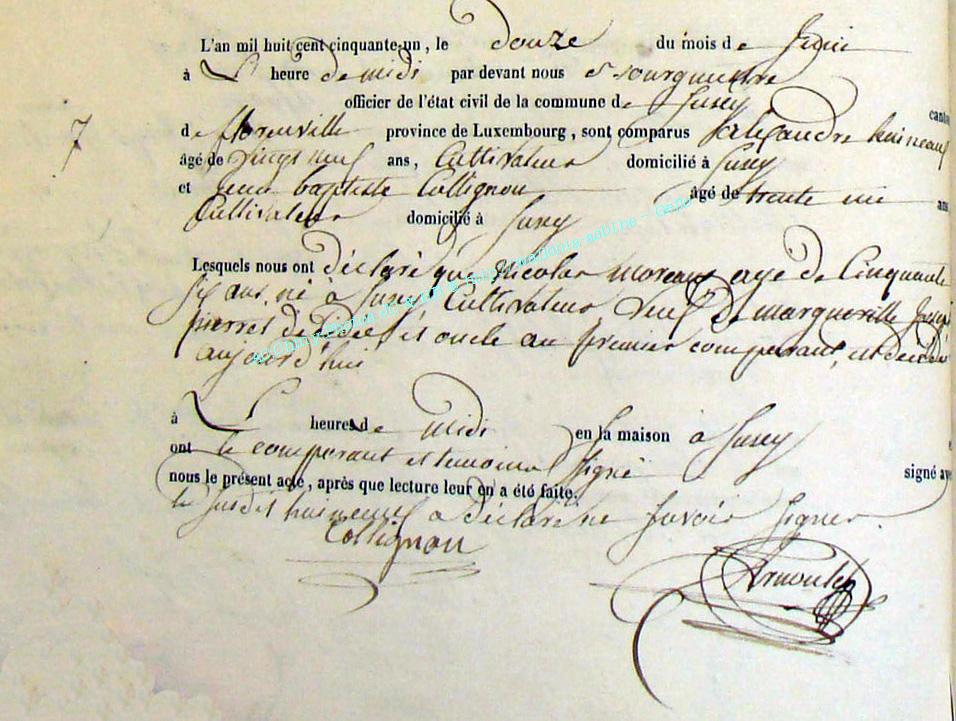 L'an mil huit cent cinquante-un, le douze du mois de
à L heure de midi par devant nous
officier de l'état civil de la commune de Suxey canton
7
de florenville province de Luxembourg, sont comparus alexandre huineauf
âgé de vingt neuf ans, Cultivateur domicilié à Suxey
et jean baptiste Collignon âgé de trente un ans
Cultivateur domicilié à Suxey
Lesquels nous ont déclaré que Nicolas moreaux age de Cinquante
six ans né à Suxey Cultivateur, veuf De marguerille
pierret décédé, oncle au premier comparant, est décédé
aujourd'hui
à L heures de midi en la maison à Suxey
ont le comparant et temoins signé signé avec
nous le présent acte, après que lecture leur en a été faite.
le susdit a déclaré ne savoir signer.
Collignon